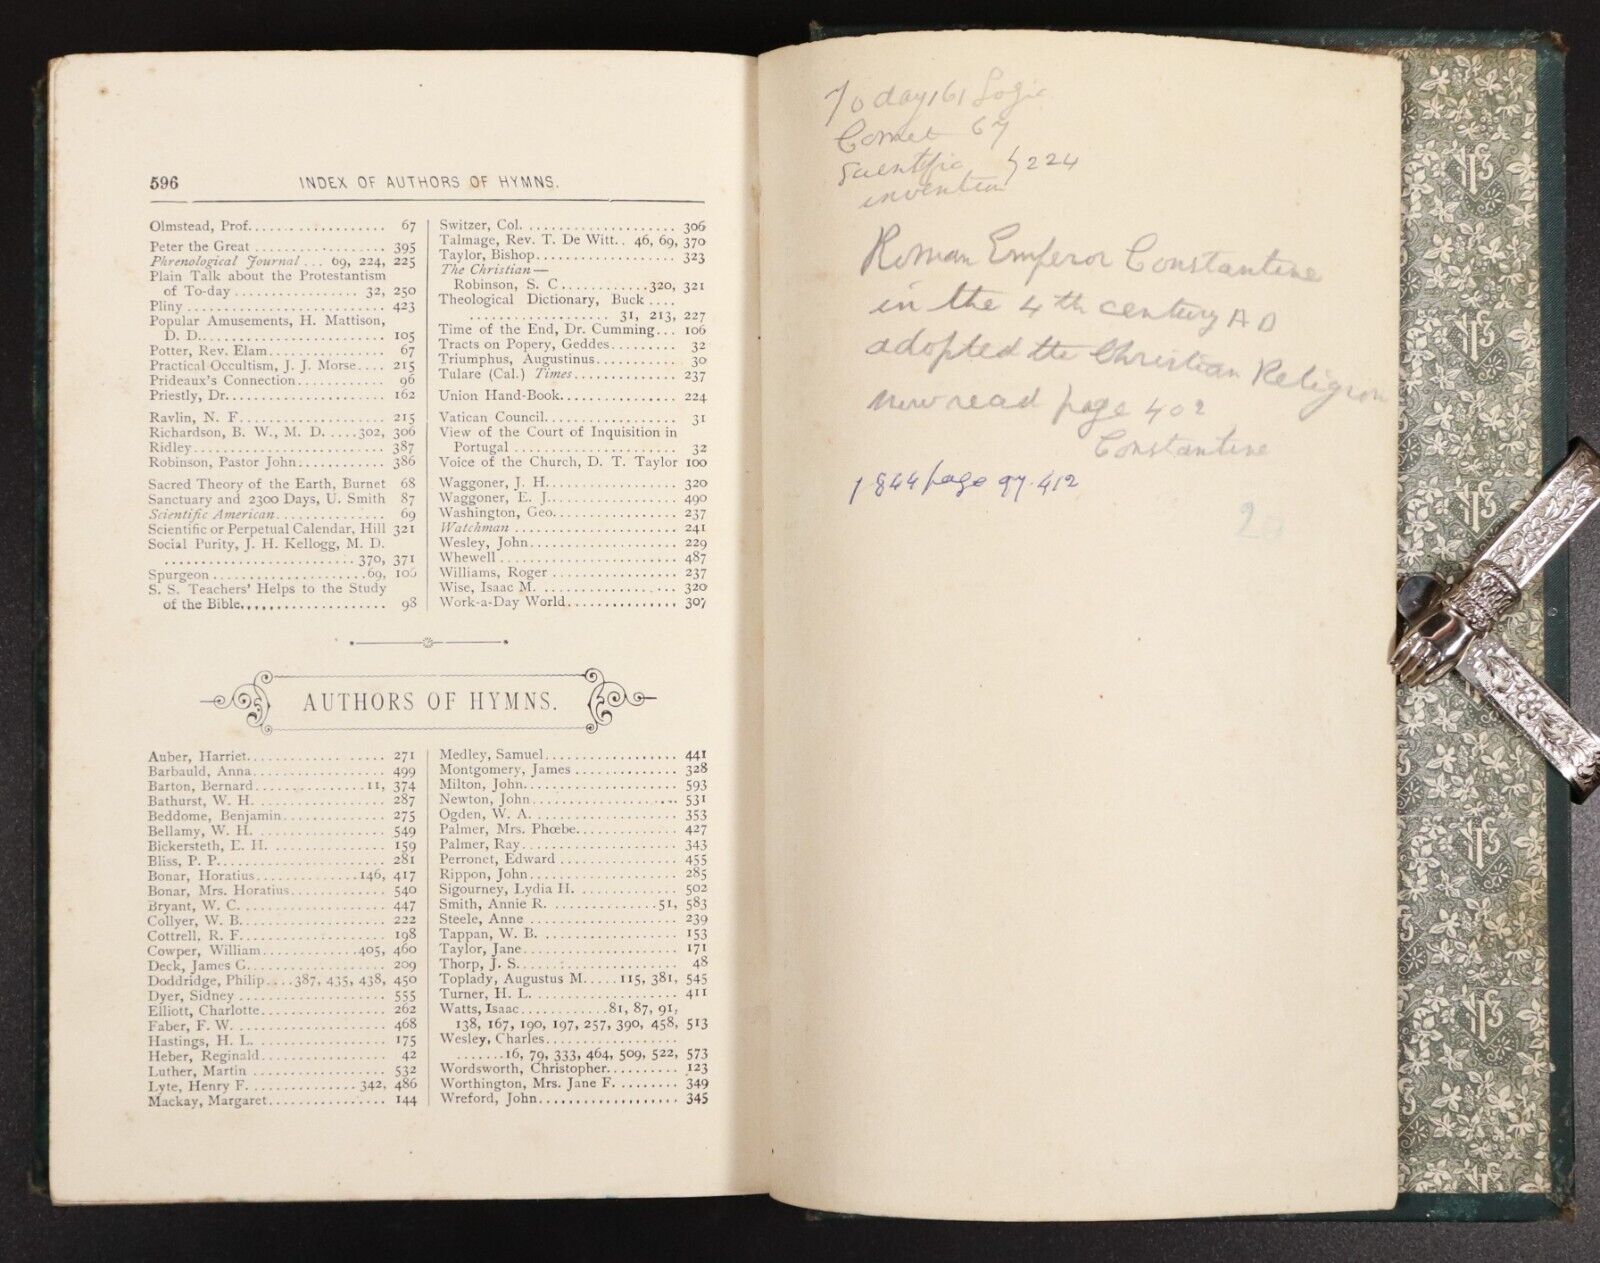 596 INDEX OF AUTHORS OF HYMNS.
Olmstead, Prof. 67
Peter the Great 395
Phrenological Journal 69, 224, 225
Plain Talk about the Protestantism
of To-day 32, 250
Pliny 423
Popular Amusements, H. Mattison,
D. D. 105
Potter, Rev. Elam 67
Practical Occultism, J. J. Morse 215
Prideaux's Connection 96
Priestly, Dr. 162
Ravlin, N. F. 215
Richardson, B. W., M. D. 302, 306
Ridley 387
Robinson, Pastor John 386
Sacred Theory of the Earth, Burnet 68
Sanctuary and 2300 Days, U. Smith 87
Scientific American 69
Scientific or Perpetual Calendar, Hill 321
Social Purity, J. H. Kellogg, M. D.
370, 371
Spurgeon 69, 106
S. S. Teachers' Helps to the Study
of the Bible 98
Switzer, Col. 306
Talmage, Rev. T. De Witt 46, 69, 370
Taylor, Bishop 323
The Christian—
Robinson, S. C. 320, 321
Theological Dictionary, Buck
31, 213, 227
Time of the End, Dr. Cumming 106
Tracts on Popery, Geddes 32
Triumphus, Augustinus 30
Tulare (Cal.) Times 237
Union Hand-Book 224
Vatican Council 31
View of the Court of Inquisition in
Portugal 32
Voice of the Church, D. T. Taylor 100
Waggoner, J. H. 320
Waggoner, E. J. 490
Washington, Geo. 237
Watchman 241
Wesley, John 229
Whewell 487
Williams, Roger 237
Wise, Isaac M. 320
Work-a-Day World 307
AUTHORS OF HYMNS.
Auber, Harriet 271
Barbauld, Anna 499
Barton, Bernard 11, 374
Bathurst, W. H. 287
Beddome, Benjamin 275
Bellamy, W. H. 549
Bickersteth, E. H. 159
Bliss, P. P. 281
Bonar, Horatius 146, 417
Bonar, Mrs. Horatius 540
Bryant, W. C. 447
Collyer, W. B. 222
Cottrell, R. F. 198
Cowper, William 405, 460
Deck, James G. 209
Doddridge, Philip 387, 435, 438, 450
Dyer, Sidney 555
Elliott, Charlotte 262
Faber, F. W. 468
Hastings, H. L. 175
Heber, Reginald 42
Luther, Martin 532
Lyte, Henry F. 342, 486
Mackay, Margaret 144
Medley, Samuel 441
Montgomery, James 328
Milton, John 593
Newton, John 531
Ogden, W. A. 353
Palmer, Mrs. Phœbe 427
Palmer, Ray 343
Perronet, Edward 455
Rippon, John 285
Sigourney, Lydia H. 502
Smith, Annie R. 51, 583
Steele, Anne 239
Tappan, W. B. 153
Taylor, Jane 171
Thorp, J. S. 48
Toplady, Augustus M. 115, 381, 545
Turner, H. L. 411
Watts, Isaac 81, 87, 91,
138, 167, 190, 197, 257, 390, 458, 513
Wesley, Charles
16, 79, 333, 464, 509, 522, 573
Wordsworth, Christopher 123
Worthington, Mrs. Jane F. 349
Wreford, John 345
Today 161 Logic
Comet 67
Scientific } 224
invention
Roman Emperor Constantine
in the 4th century AD
adopted the Christian Religion
now read page 402
Constantine
1844 page 97.412